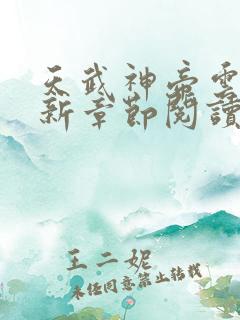 天武神帝雲
新章節閱讀
王二妮
未经同意禁止转载